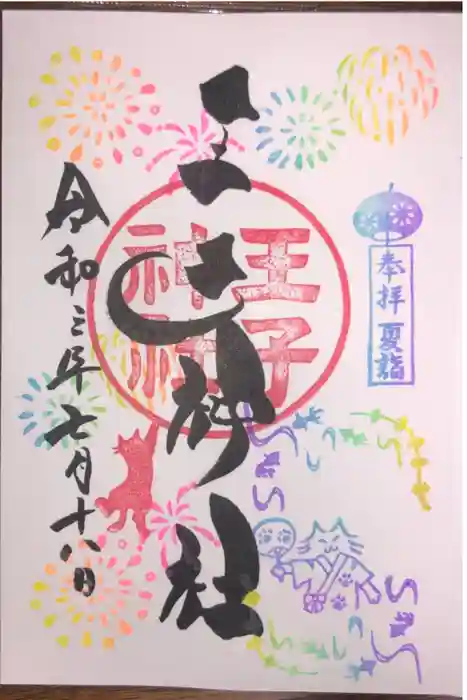 奉拝 夏詣
王子神社
王子
神社
令和三年七月十八日